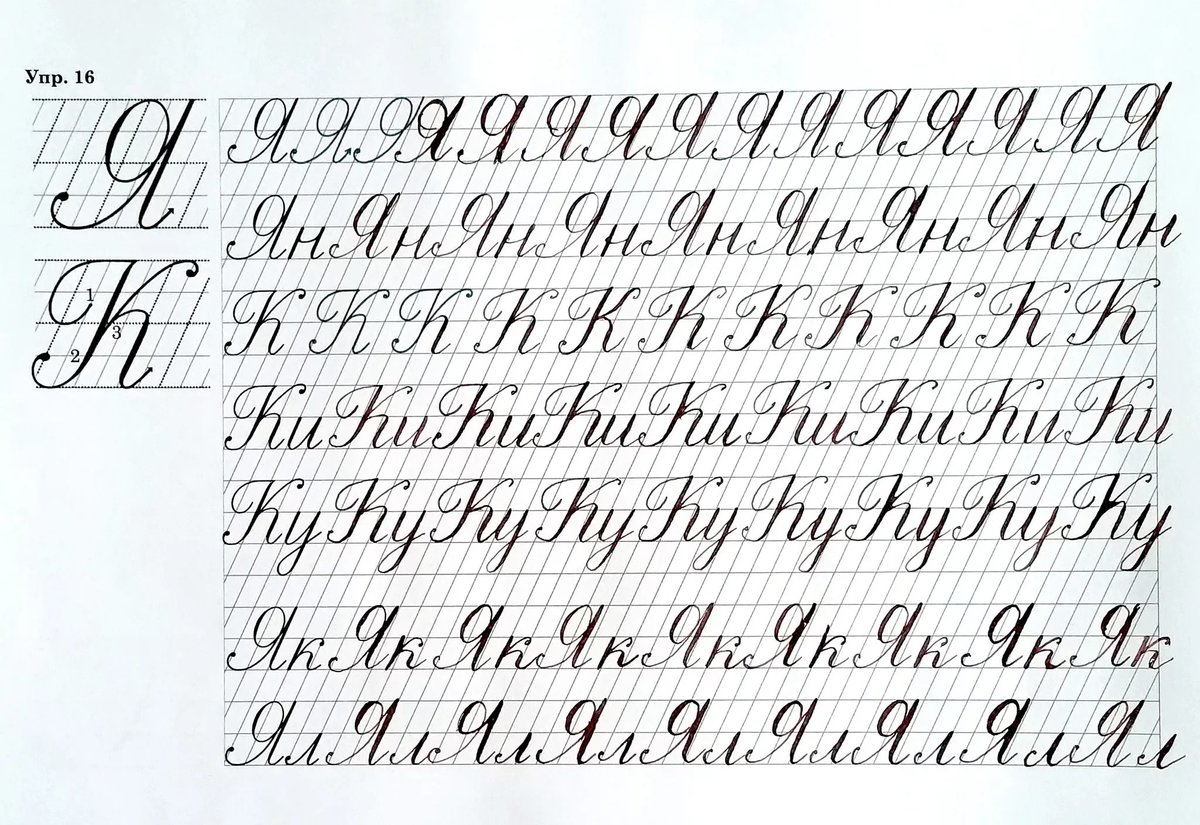 Упр. 16
Я
К
1
3
2
Я Я Я Я Я Я Я Я Я Я Я Я Я Я Я
Ян Ян Ян Ян Ян Ян Ян Ян Ян
К К К К К К К К К К К
Ки Ки Ки Ки Ки Ки Ки Ки Ки
Ку Ку Ку Ку Ку Ку Ку Ку Ку
Як Як Як Як Як Як Як Як Як
Ял Ял Ял Ял Ял Ял Ял Ял Ял